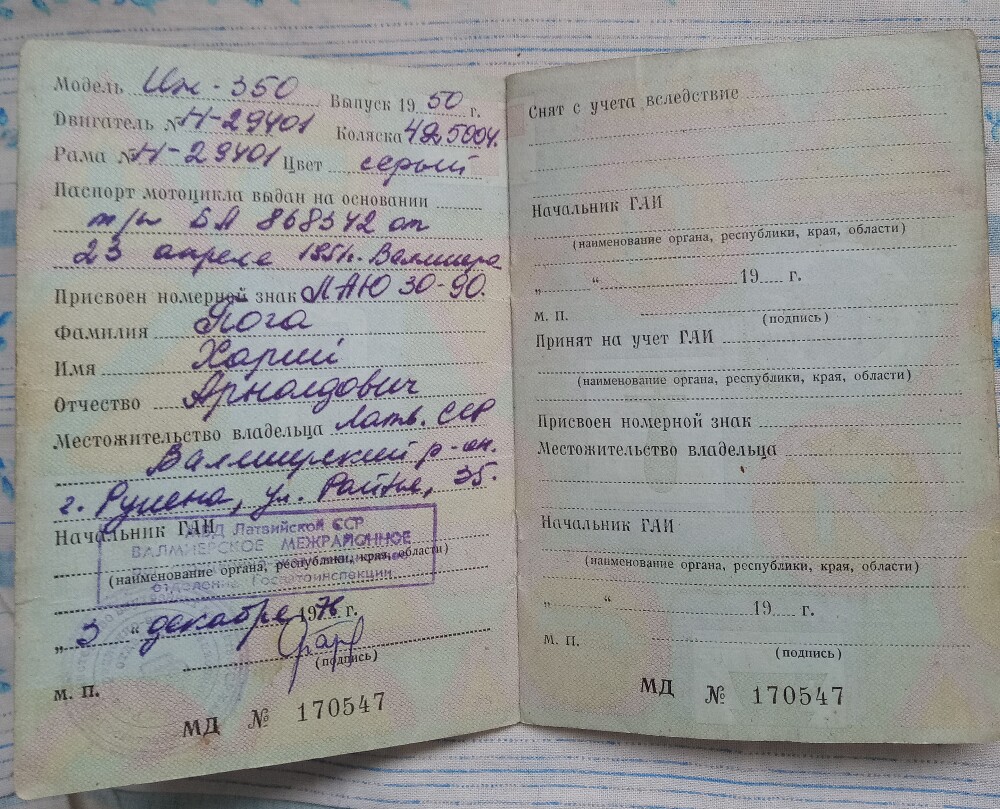 Модель Иж-350 Выпуск 1950 г.
Двигатель № Н-29401 Коляска 425004.
Рама № Н-29401 Цвет серый
Паспорт мотоцикла выдан на основании
т/п БА 868342 от
23 апреля 1951г. Валмиера
Присвоен номерной знак ЛАЮ 30-90.
Фамилия Пога
Имя Харий
Отчество Арнольдович
Местожительство владельца Латв. ССР
Валмиерский р-он.
г. Руиена, ул. Райня, 35.
Начальник ГАИ
МВД Латвийской ССР
ВАЛМИЕРСКОЕ МЕЖРАЙОННОЕ
(наименование органа, республики, края, области)
отделение Госавтоинспекции
„3“ декабря 1976 г.
(подпись)
М. П.
МД № 170547
Снят с учета вследствие
Начальник ГАИ
(наименование органа, республики, края, области)
„ “ 19 г.
М. П.
(подпись)
Принят на учет ГАИ
(наименование органа, республики, края, области)
Присвоен номерной знак
Местожительство владельца
Начальник ГАИ
(наименование органа, республики, края, области)
„ “ 19 г.
М. П.
(подпись)
МД № 170547